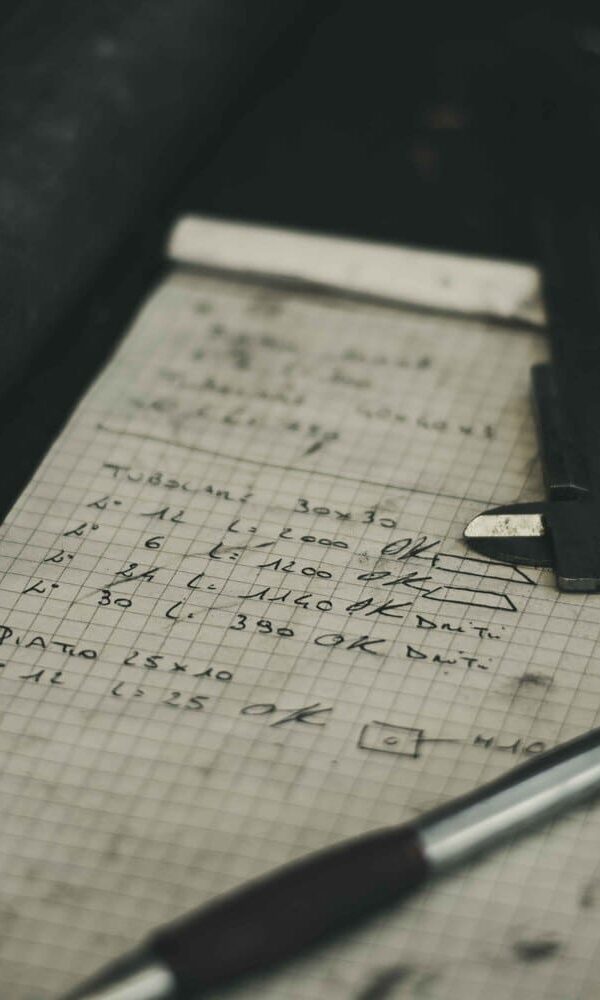 TUBOLARI 40x40x3
TUBOLARI 30x30
N° 12 L= 2000 OK
N° 6 L= 1200 OK
N° 24 L= 1140 OK DRITTI
N° 30 L= 390 OK DRITTI
PIATTO 25x10
12 L= 25 OK
M10